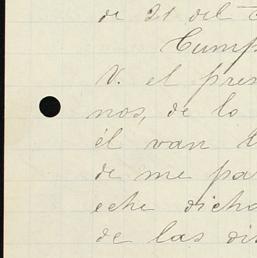 de 21 del
Cump
V. el pres
nos, de lo
él van
de me pa
eche dicho
de las dis